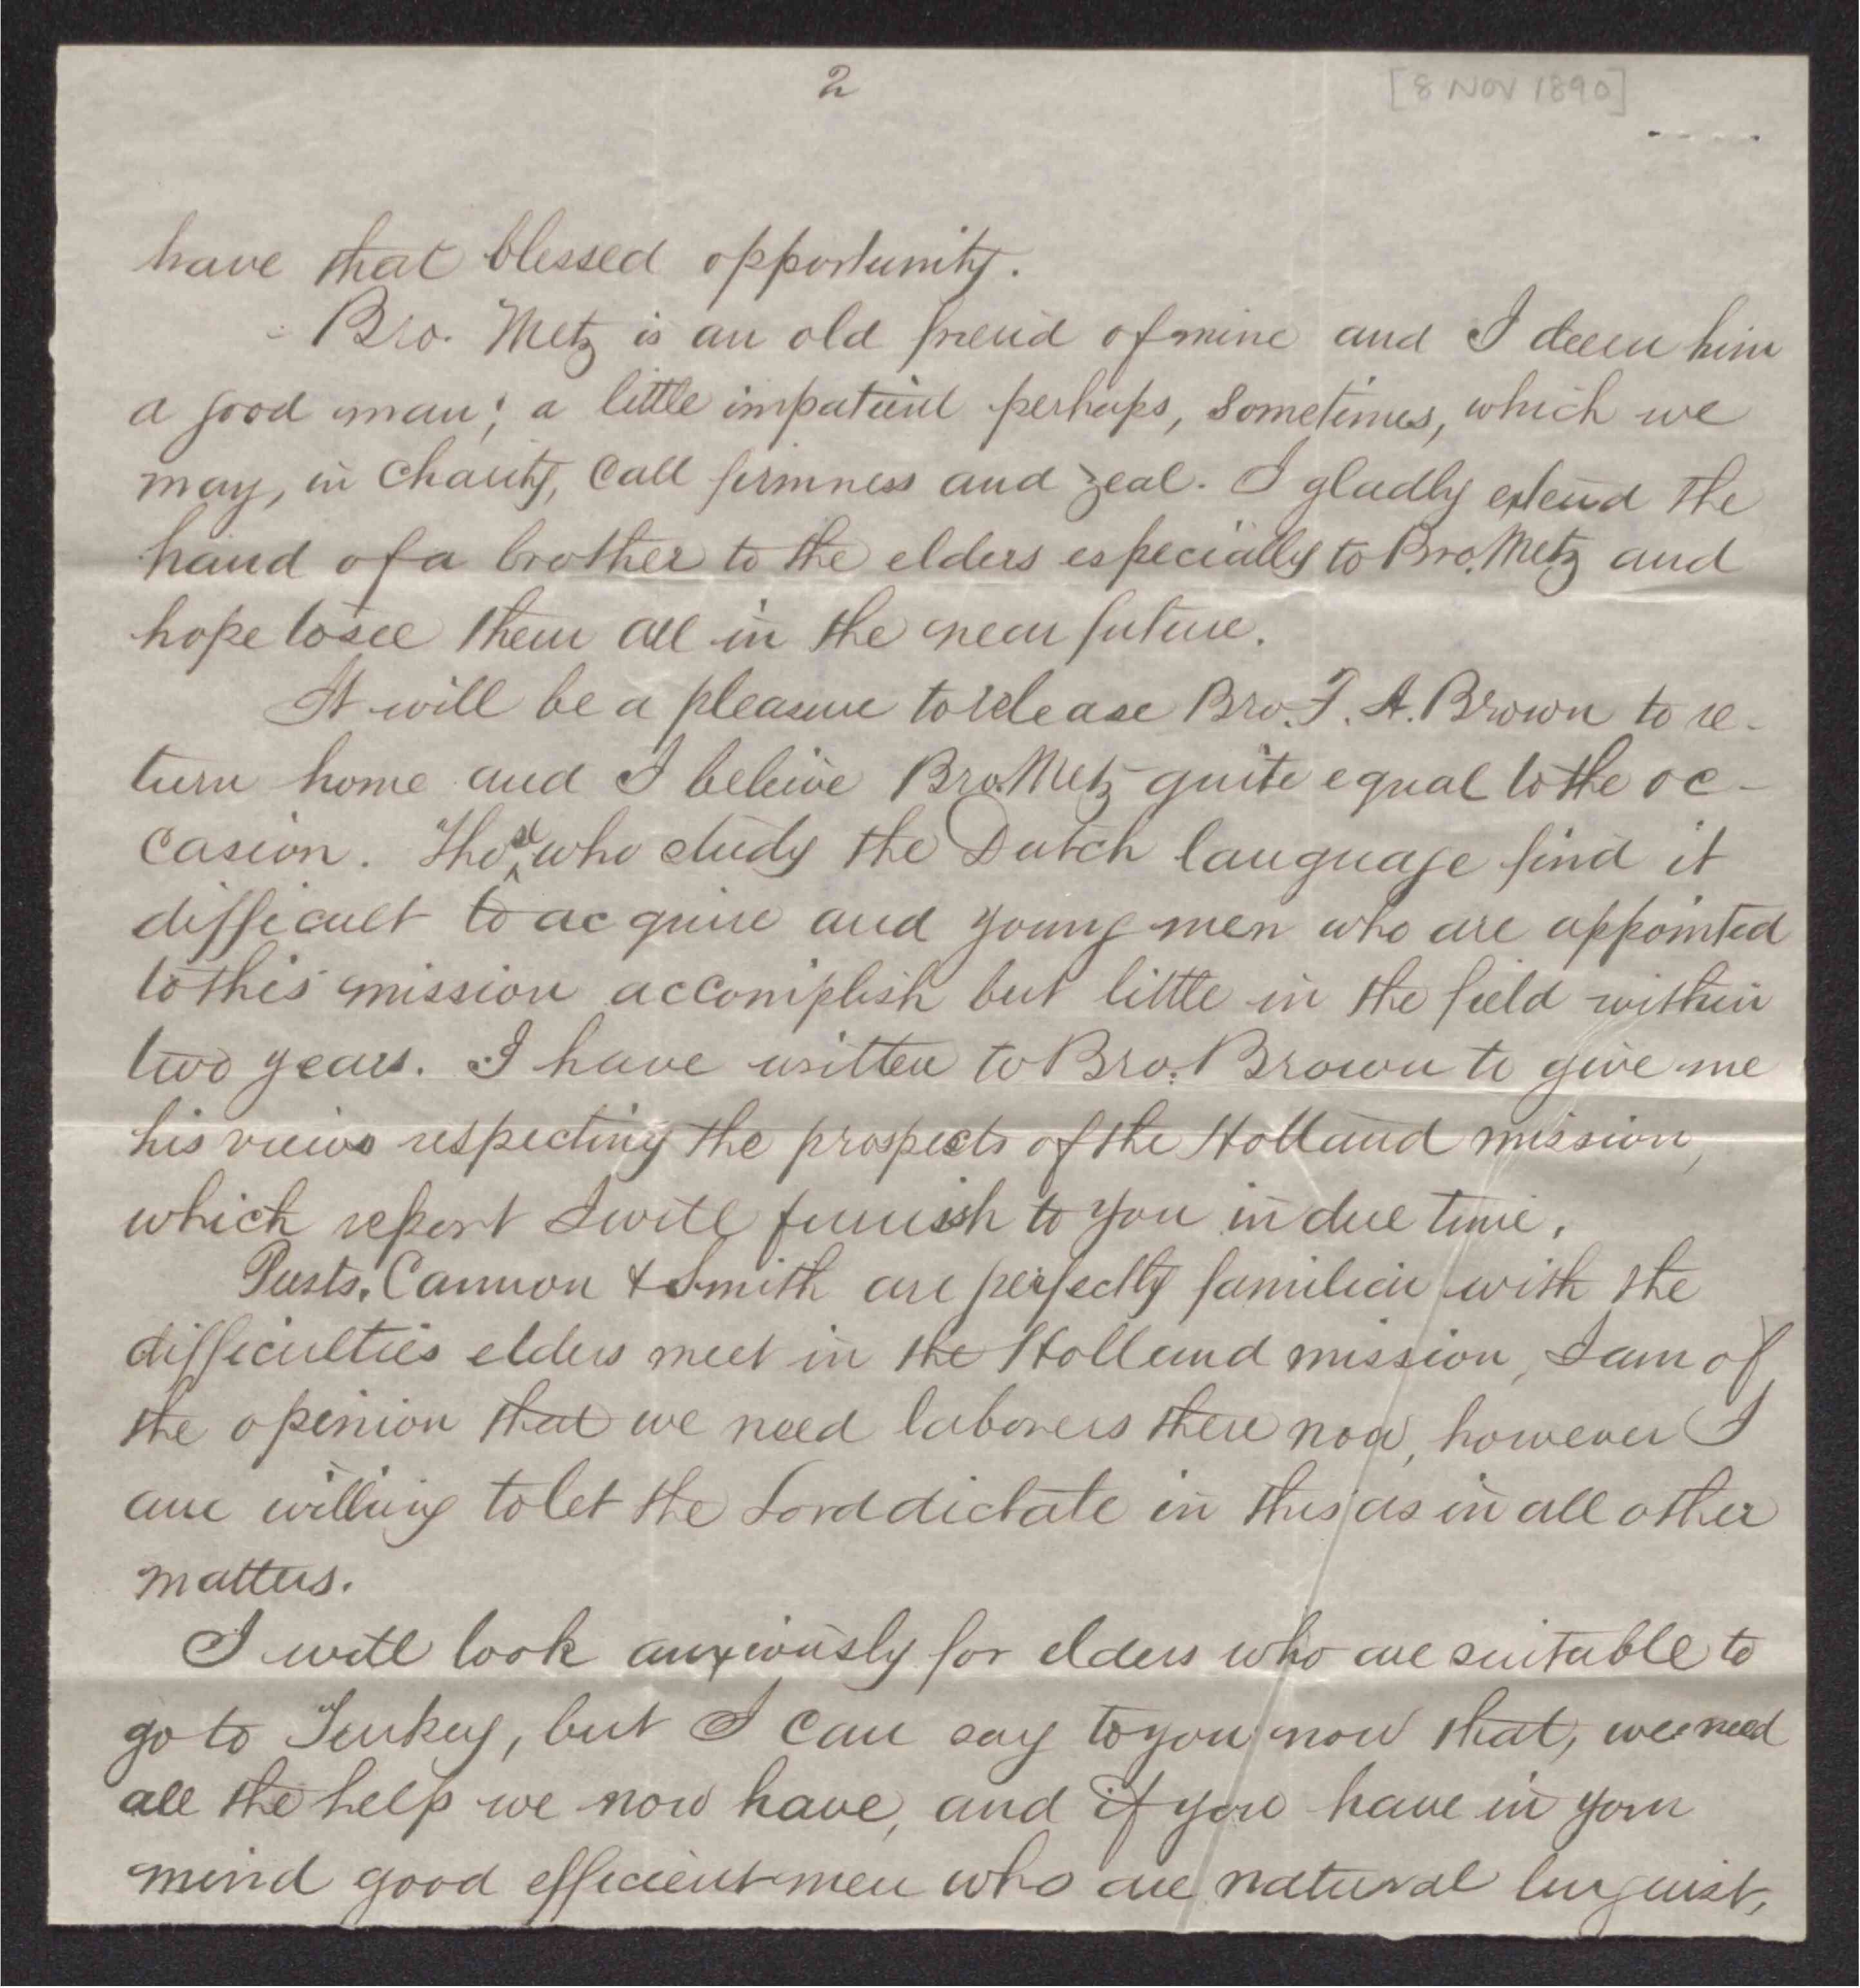 2
[8 NOV 1890]
have that blessed opportunity.
Bro. Metz is an old friend of mine and I deem him
a good man; a little impatient perhaps, sometimes, which we
may, in charity, call firmness and zeal. I gladly extend the
hand of a brother to the elders especially to Bro. Metz and
hope to see them all in the near future.
It will be a pleasure to release Bro. F. A. Brown to re-
turn home and I beleive Bro. Metz quite equal to the oc-
casion. Those who study the Dutch language find it
difficult to acquire and young men who are appointed
to this mission accomplish but little in the field within
two years. I have written to Bro. Brown to give me
his views respecting the prospects of the Holland mission,
which report I will furnish to you in due time.
Prests. Cannon & Smith are perfectly familiar with the
difficulties elders meet in the Holland mission, I am of
the opinion that we need laborers there now, however I
am willing to let the Lord dictate in this as in all other
matters.
I will look anxiously for elders who are suitable to
go to Turkey, but I can say to you now that, we need
all the help we now have, and if you have in your
mind good efficient men who are natural linguist,